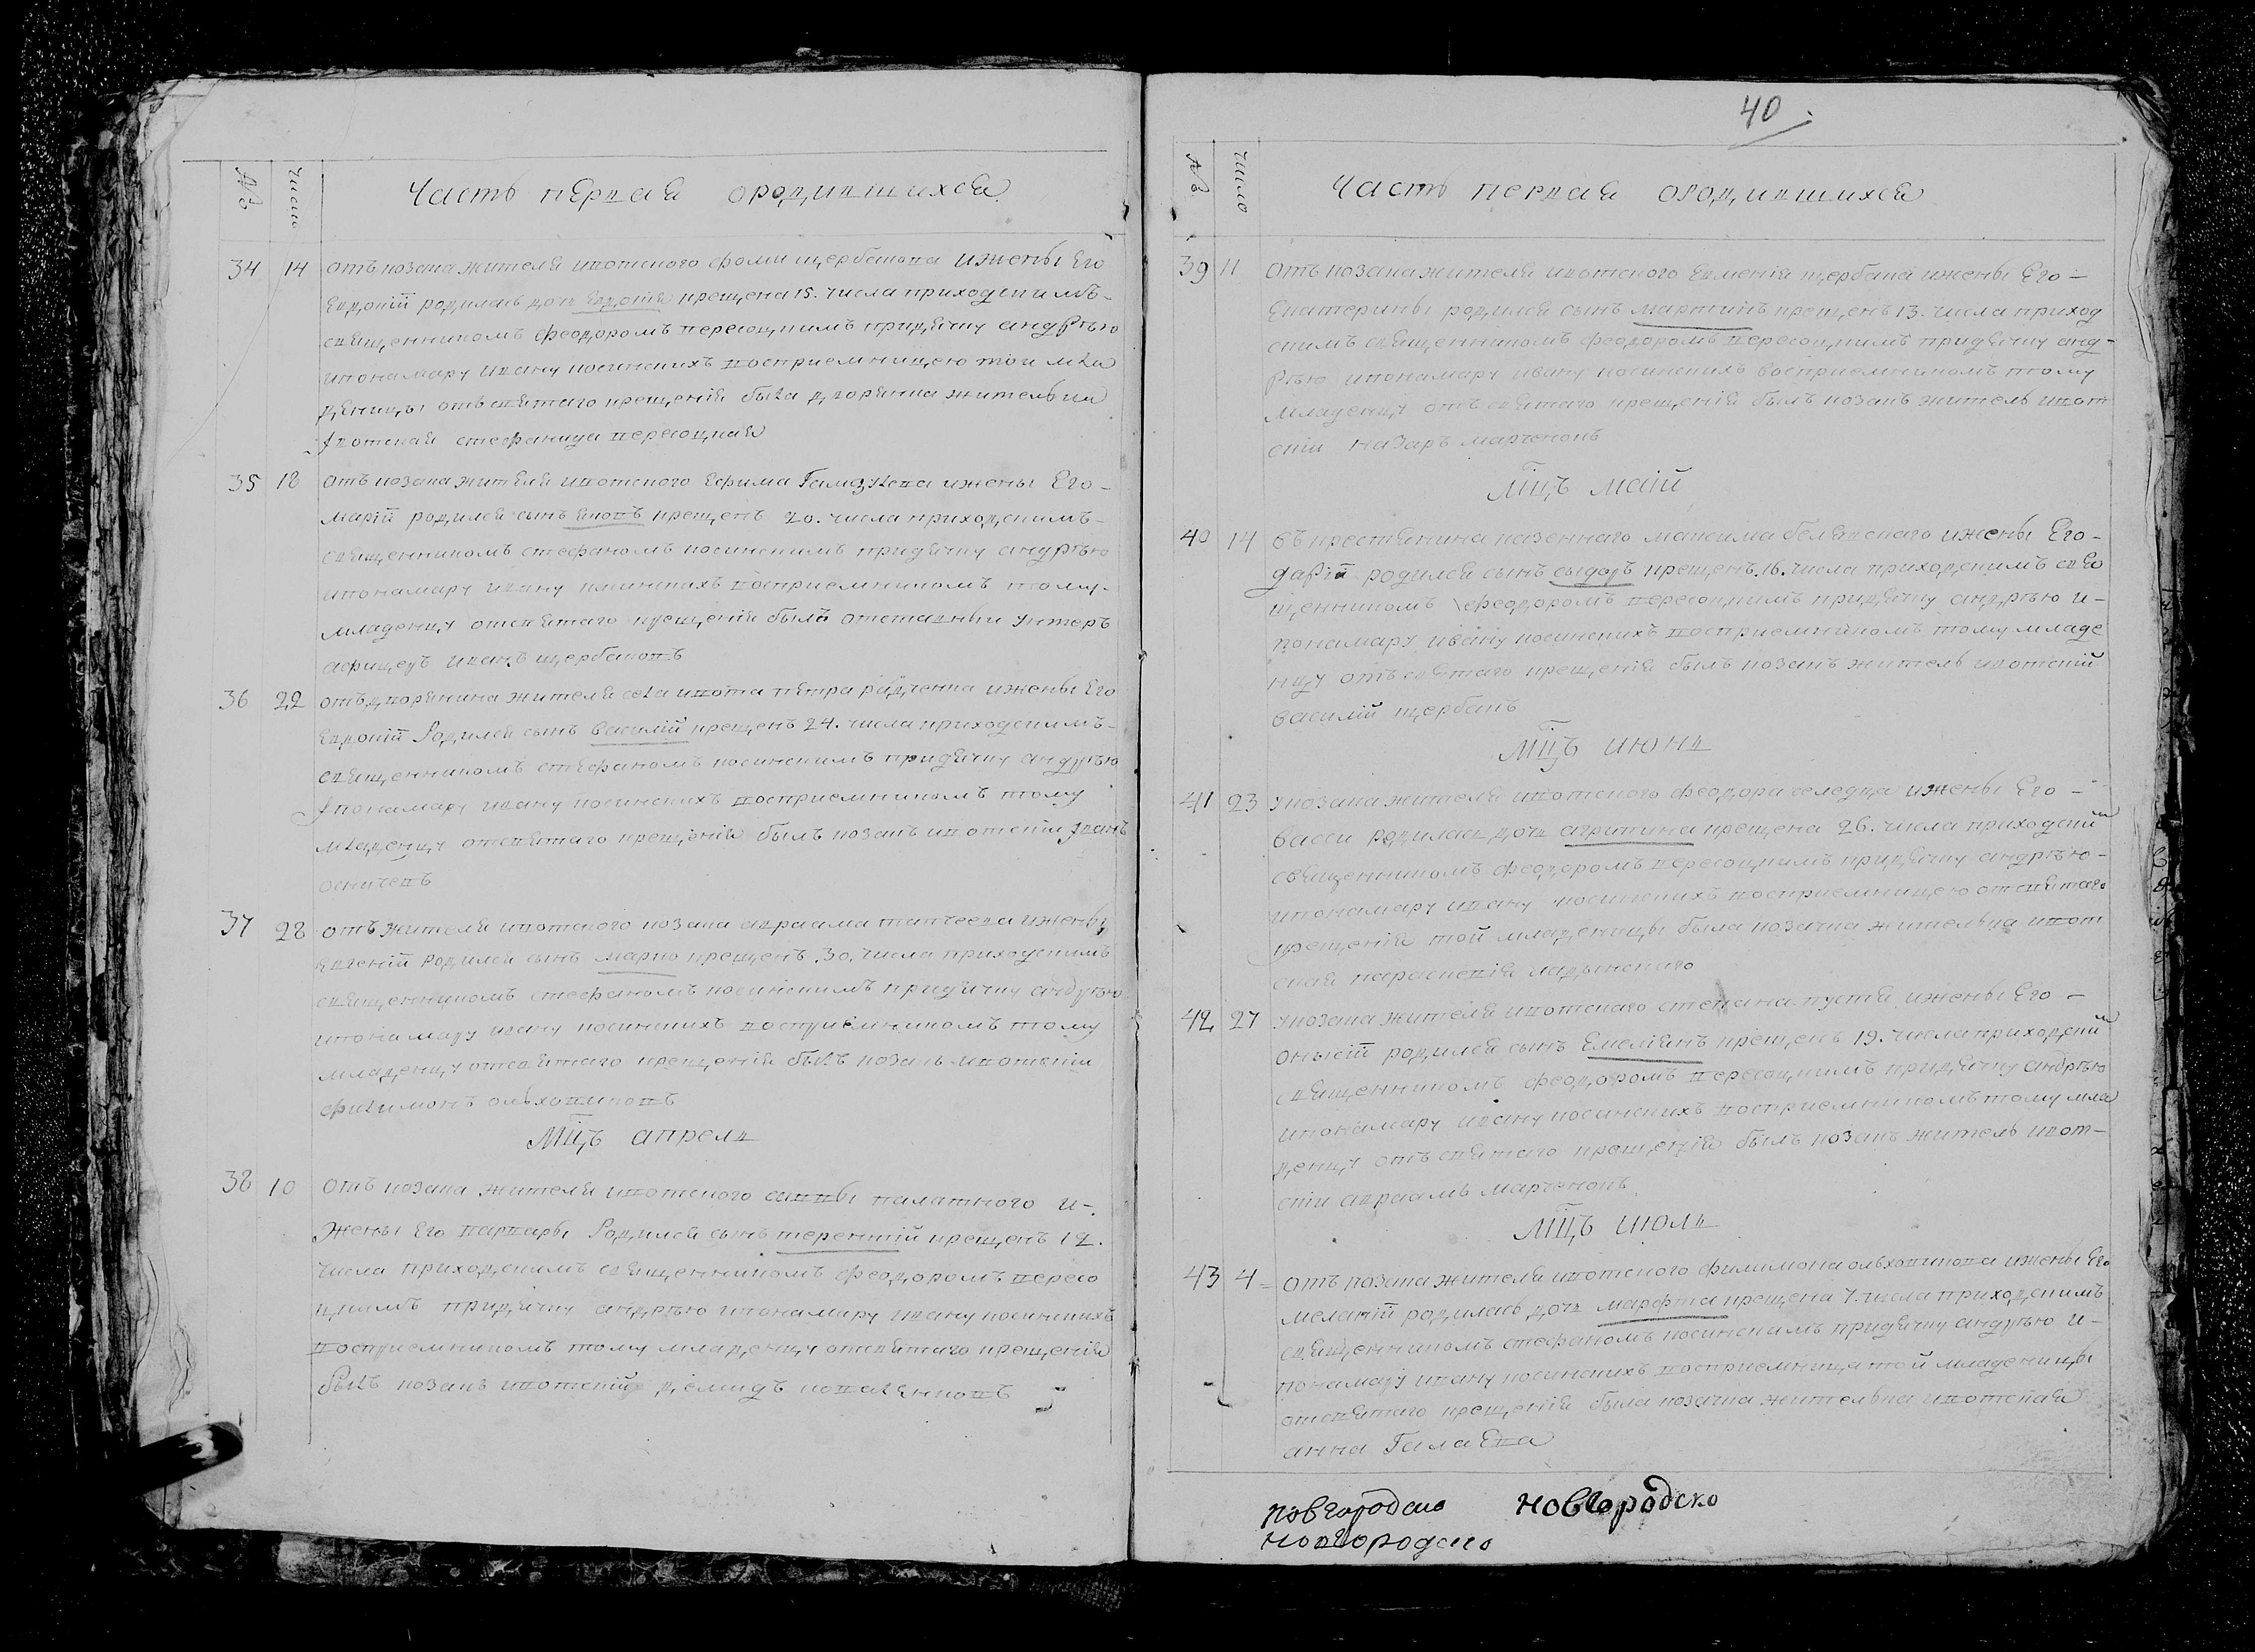 № число Часть первая ородившихся
34 14 отъ козака жителя ивотского фомы щербакова ижены Его
Евдокїй родилась дочь Евдокїя крещена 15. числа приходскимъ-
священникомъ феодоромъ пересоцкимъ придячку андрѣю
ипонамару ивану косинскихъ восприемницею той мла
деницы отъ святаго крещенїя была дворянка жителька
Iвотская стефанида пересоцкая
35 18 отъ козака жителя ивотского Ефима ижены Его-
Марїй родился сынъ Яковъ крещенъ 20. числа приходскимъ-
священникомъ стефаномъ косинскимъ придячку андрѣю
ипонамару ивану косинскихъ восприемникомъ тому-
младенцу отсвятаго крещенїя былъ отставный унтеръ
афицеръ иванъ щербаковъ
36 22 отъдворянина жителя села ивота петра радченка ижены Его
Евдокїй Родился сынъ василїй крещенъ 24. числа приходскимъ-
священникомъ стефаномъ косинскимъ придячку андрѣю
Iпонамару ивану косинскихъ восприемникомъ тому
младенцу отсвятаго крещенїя былъ козакъ ивотскїй Iванъ
37 28 отъ жителя ивотского козака авраама ижены
Евгенїй Родился сынъ марко крещенъ .30. числа приходскимъ
священникомъ стефаномъ косинскимъ придячку андрѣю
ипонамару ивану косинскихъ восприемникомъ тому
младенцу отсвятаго крещенїя былъ козакъ ивотскїй
филимонъ ольховиковъ
Мцъ апрель
38 10 отъ козака жителя ивотского саввы палатного и-
жены Его варвары Родился сынъ терентїй крещенъ 12.
числа приходскимъ священникомъ феодоромъ пересо
цкимъ придячку андрѣю ипонамару ивану косинскихъ
восприемникомъ тому младенцу отсвятаго крещенїя
былъ козакъ ивотскїй демидъ
40.
№ число Часть первая ородившихся
39 11 отъ козака жителя ивотского Евменїя щербака ижены Его-
Екатерины родился сынъ мартинъ крещенъ 13. числа приход
скимъ священникомъ феодоромъ пересоцкимъ придячку анд-
рѣю ипонамару ивану косинскихъ восприемникомъ тому
младенцу отъ святаго крещенїя былъ козакъ житель ивот
скїй назаръ марченокъ
Мцъ маїй
40 14 крестянина казеннаго максима ижены Его-
дарїй родился сынъ сыдоръ крещенъ .16. числа приходскимъ свя
щенникомъ феодоромъ пересоцкимъ придячку андрѣю и-
понамару ивану косинскихъ восприемникомъ тому младе
нцу отъ святаго крещенїя былъ козакъ житель ивотскїй
василїй щербакъ
Мцъ июнь
41 23 укозака жителя ивотского феодора селедца ижены Его-
васси родилась дочь агрипина крещена 26. числа приходский
священникомъ феодоромъ пересоцкимъ придячку андрѣю-
ипонамару ивану косинскихъ восприемницею отсвятаго
крещенїя той младеницы была козачка жителька ивот
ская параскевїя
42 27 укозака жителя ивотскаго степана пустія ижены Его-
онысїй родился сынъ Емелїянъ крещенъ 19. числа приходский
священникомъ феодоромъ пересоцкимъ придячку андрѣю
ипонамару ивану косинскихъ восприемникомъ тому мла
денцу отъ святаго крещенїя былъ козакъ житель ивот-
скїй авраамъ марченокъ
Мцъ июль
43 4 отъ козака жителя ивотского филимона ольховикова ижены Его
меланїй родилась дочь марфта крещена 7. числа приходскимъ
священникомъ стефаномъ косинскимъ придячку андрѣю и-
понамару ивану косинскихъ восприемница той младеницы
отсвятаго крещенїя была козачка жителька ивотская
анна
новгородско новгородско
новгородско